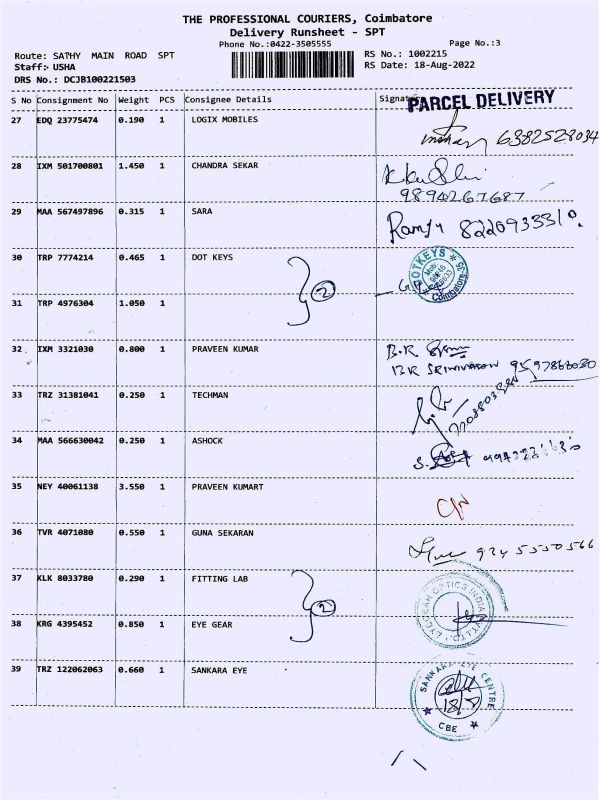 THE PROFESSIONAL COURIERS, Coimbatore
Delivery Runsheet - SPT
Phone No.:0422-3505555
Page No.:3
Route: SATHY MAIN ROAD SPT
RS No.: 1002215
Staff: USHA
RS Date: 18-Aug-2022
DRS No.: DCJB100221503
S No Consignment No Weight PCS Consignee Details Signature
PARCEL DELIVERY
27 EDQ 23775474 0.190 1 LOGIX MOBILES
6382528034
28 IXM 501700801 1.450 1 CHANDRA SEKAR
9894267687
29 MAA 567497896 0.315 1 SARA
Ramju 8220933310
30 TRP 7774214 0.465 1 DOT KEYS
DOTKEYS
Coimbatore-35
2
31 TRP 4976304 1.050 1
32 IXM 3321030 0.800 1 PRAVEEN KUMAR
B.R
B.R SRINIVASAN 9597866030
33 TRZ 31381041 0.250 1 TECHMAN
34 MAA 566630042 0.250 1 ASHOCK
35 NEY 40061138 3.550 1 PRAVEEN KUMART
C/N
36 TVR 4071080 0.550 1 GUNA SEKARAN
924 5550566
37 KLK 8033780 0.290 1 FITTING LAB
2
EYEGEAR OPTICS INDIA
38 KRG 4395452 0.850 1 EYE GEAR
39 TRZ 122062063 0.660 1 SANKARA EYE
SANKARA EYE CENTRE
18/8
CBE